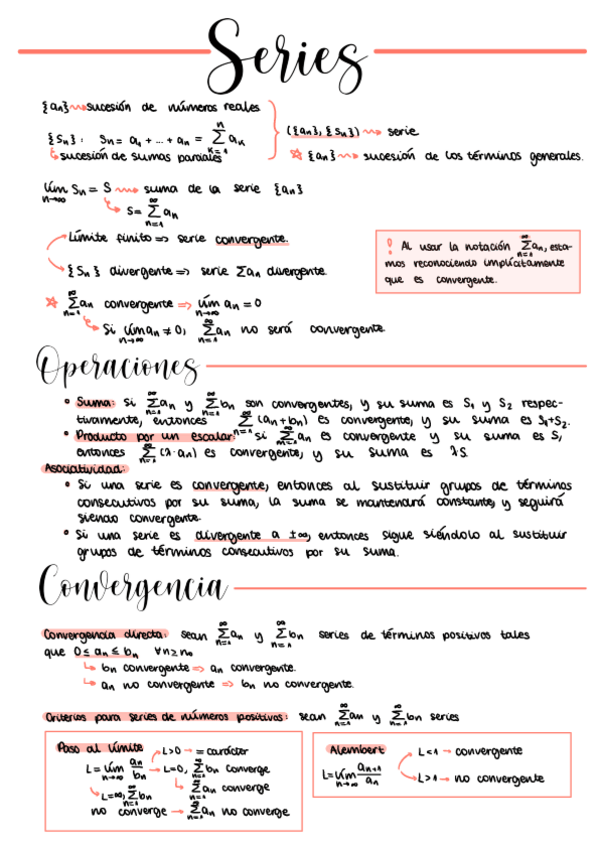 Series
{an} ⇝ sucesión de números reales
{Sn}: Sn = a1 + ... + an = ∑_{k=1}^{n} ak
↳ sucesión de sumas parciales
({an}, {Sn}) ⇝ serie
☆ {an} ⇝ sucesión de los términos generales.
lím_{n→∞} Sn = S ⇝ suma de la serie {an}
↳ S = ∑_{n=1}^{∞} an
Límite finito ⇒ serie convergente.
{Sn} divergente ⇒ serie ∑an divergente.
! Al usar la notación ∑_{n=1}^{∞} an, esta-
mos reconociendo implícitamente
que es convergente.
☆ ∑_{n=1}^{∞} an convergente ⇒ lím_{n→∞} an = 0
↳ Si lím_{n→∞} an ≠ 0, ∑_{n=1}^{∞} an no será convergente.
Operaciones
• Suma: si ∑_{n=1}^{∞} an y ∑_{n=1}^{∞} bn son convergentes, y su suma es S1 y S2 respec-
tivamente, entonces ∑_{n=1}^{∞} (an + bn) es convergente, y su suma es S1+S2.
• Producto por un escalar: si ∑_{n=1}^{∞} an es convergente y su suma es S,
entonces ∑_{n=1}^{∞} (λ·an) es convergente, y su suma es λS.
Asociatividad:
• Si una serie es convergente, entonces al sustituir grupos de términos
consecutivos por su suma, la suma se mantendrá constante, y seguirá
siendo convergente.
• Si una serie es divergente a ±∞, entonces sigue siéndolo al sustituir
grupos de términos consecutivos por su suma.
Convergencia
Convergencia directa: sean ∑_{n=1}^{∞} an y ∑_{n=1}^{∞} bn series de términos positivos tales
que 0 ≤ an ≤ bn ∀n≥n₀
↳ bn convergente ⇒ an convergente.
↳ an no convergente ⇒ bn no convergente.
Criterios para series de números positivos: sean ∑_{n=1}^{∞} an y ∑_{n=1}^{∞} bn series
Paso al límite
L>0 → = carácter
L = lím_{n→∞} an/bn → L=0, ∑_{n=1}^{∞} bn converge
↳ ∑_{n=1}^{∞} an converge
↳ L=∞, ∑_{n=1}^{∞} bn
no converge → ∑_{n=1}^{∞} an no converge
Alembert
L<1 → convergente
L = lím_{n→∞} an+1/an
L>1 → no convergente